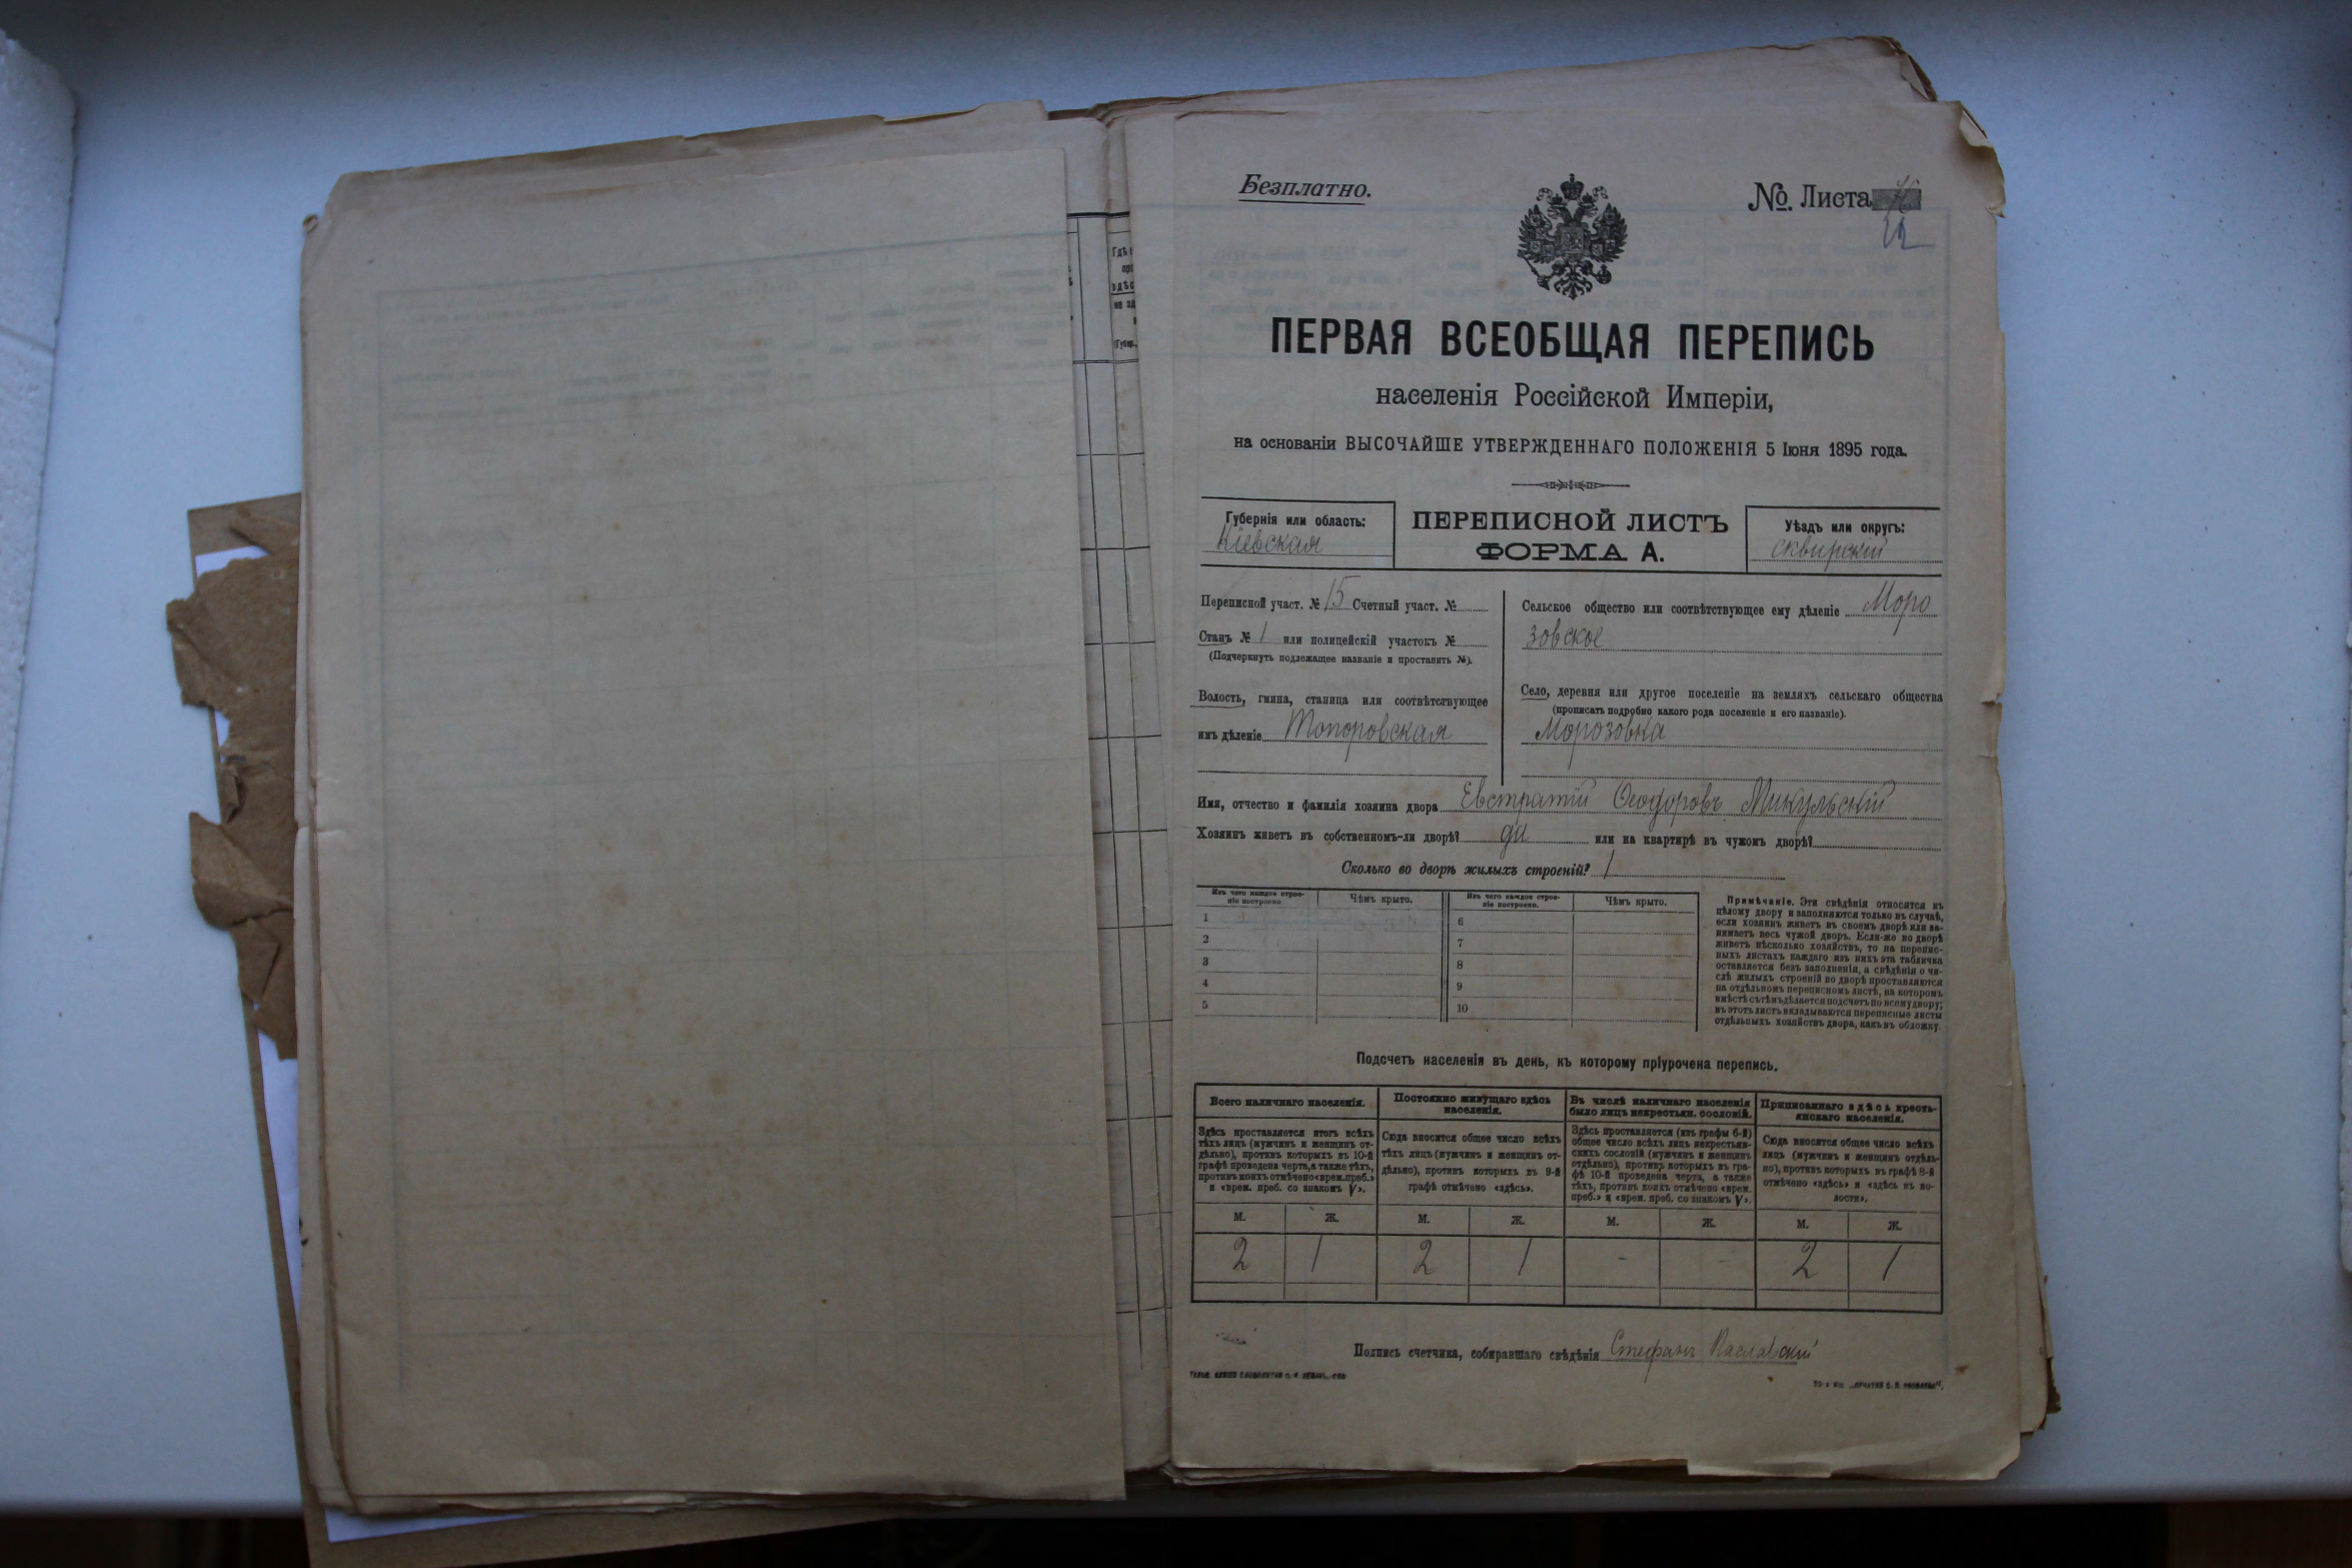 Безплатно.
№. Листа
12
ПЕРВАЯ ВСЕОБЩАЯ ПЕРЕПИСЬ
населенія Россійской Имперіи,
на основаніи ВЫСОЧАЙШЕ УТВЕРЖДЕННАГО ПОЛОЖЕНІЯ 5 Іюня 1895 года.
Губернія или область:
Кіевская
ПЕРЕПИСНОЙ ЛИСТЪ
ФОРМА А.
Уѣздъ или округъ:
Сквирскій
Переписной участ. № 15 Счетный участ. №
Станъ № 1 или полицейскій участокъ №
(Подчеркнуть подлежащее названіе и проставить №).
Волость, гмина, станица или соотвѣтствующее
ихъ дѣленіе Топоровская
Сельское общество или соотвѣтствующее ему дѣленіе Моро
зовское
Село, деревня или другое поселеніе на земляхъ сельскаго общества
(прописать подробно какого рода поселеніе и его названіе).
Морозовка
Имя, отчество и фамилія хозяина двора Евстратій Ѳеодоровъ Микульскій
Хозяинъ живетъ въ собственномъ-ли дворѣ? да или на квартирѣ въ чужомъ дворѣ?
Сколько во дворѣ жилыхъ строеній? 1
Изъ чего каждое строе-
ніе построено.
Чѣмъ крыто.
Изъ чего каждое строе-
ніе построено.
Чѣмъ крыто.
1
2
3
4
5
6
7
8
9
10
Примѣчаніе. Эти свѣдѣнія относятся къ
цѣлому двору и заполняются только въ случаѣ,
если хозяинъ живетъ въ своемъ дворѣ или за-
нимаетъ весь чужой дворъ. Если-же во дворѣ
живетъ нѣсколько хозяйствъ, то на перепис-
ныхъ листахъ каждаго изъ нихъ эта табличка
оставляется безъ заполненія, а свѣдѣнія о чи-
слѣ жилыхъ строеній во дворѣ проставляются
на отдѣльномъ переписномъ листѣ, на которомъ
вмѣстѣ съ тѣмъ дѣлается подсчетъ по всему двору;
въ этотъ листъ вкладываются переписные листы
отдѣльныхъ хозяйствъ двора, какъ въ обложку.
Подсчетъ населенія въ день, къ которому пріурочена перепись.
Всего наличнаго населенія.
Здѣсь проставляется итогъ всѣхъ
тѣхъ лицъ (мужчинъ и женщинъ от-
дѣльно), противъ которыхъ въ 10-й
графѣ проведена черта, а также тѣхъ,
противъ коихъ отмѣчено «врем. преб.»
и «врем. преб. со знакомъ V».
Постоянно живущаго здѣсь
населенія.
Сюда вносится общее число всѣхъ
тѣхъ лицъ (мужчинъ и женщинъ от-
дѣльно), противъ которыхъ въ 9-й
графѣ отмѣчено «здѣсь».
Въ числѣ наличнаго населенія
было лицъ некрестьян. сословій.
Здѣсь проставляется (изъ графы 6-й)
общее число всѣхъ лицъ некрестьян-
скихъ сословій (мужчинъ и женщинъ
отдѣльно), противъ которыхъ въ гра-
фѣ 10-й проведена черта, а также
тѣхъ, противъ коихъ отмѣчено «врем.
преб.» и «врем. преб. со знакомъ V».
Приписаннаго здѣсь кресть-
янскаго населенія.
Сюда вносится общее число всѣхъ
лицъ (мужчинъ и женщинъ отдѣль-
но), противъ которыхъ въ графѣ 8-й
отмѣчено «здѣсь» и «здѣсь въ во-
лости».
М. Ж. М. Ж. М. Ж. М. Ж.
2 1 2 1 - - 2 1
Подпись счетчика, собиравшаго свѣдѣнія Стефанъ